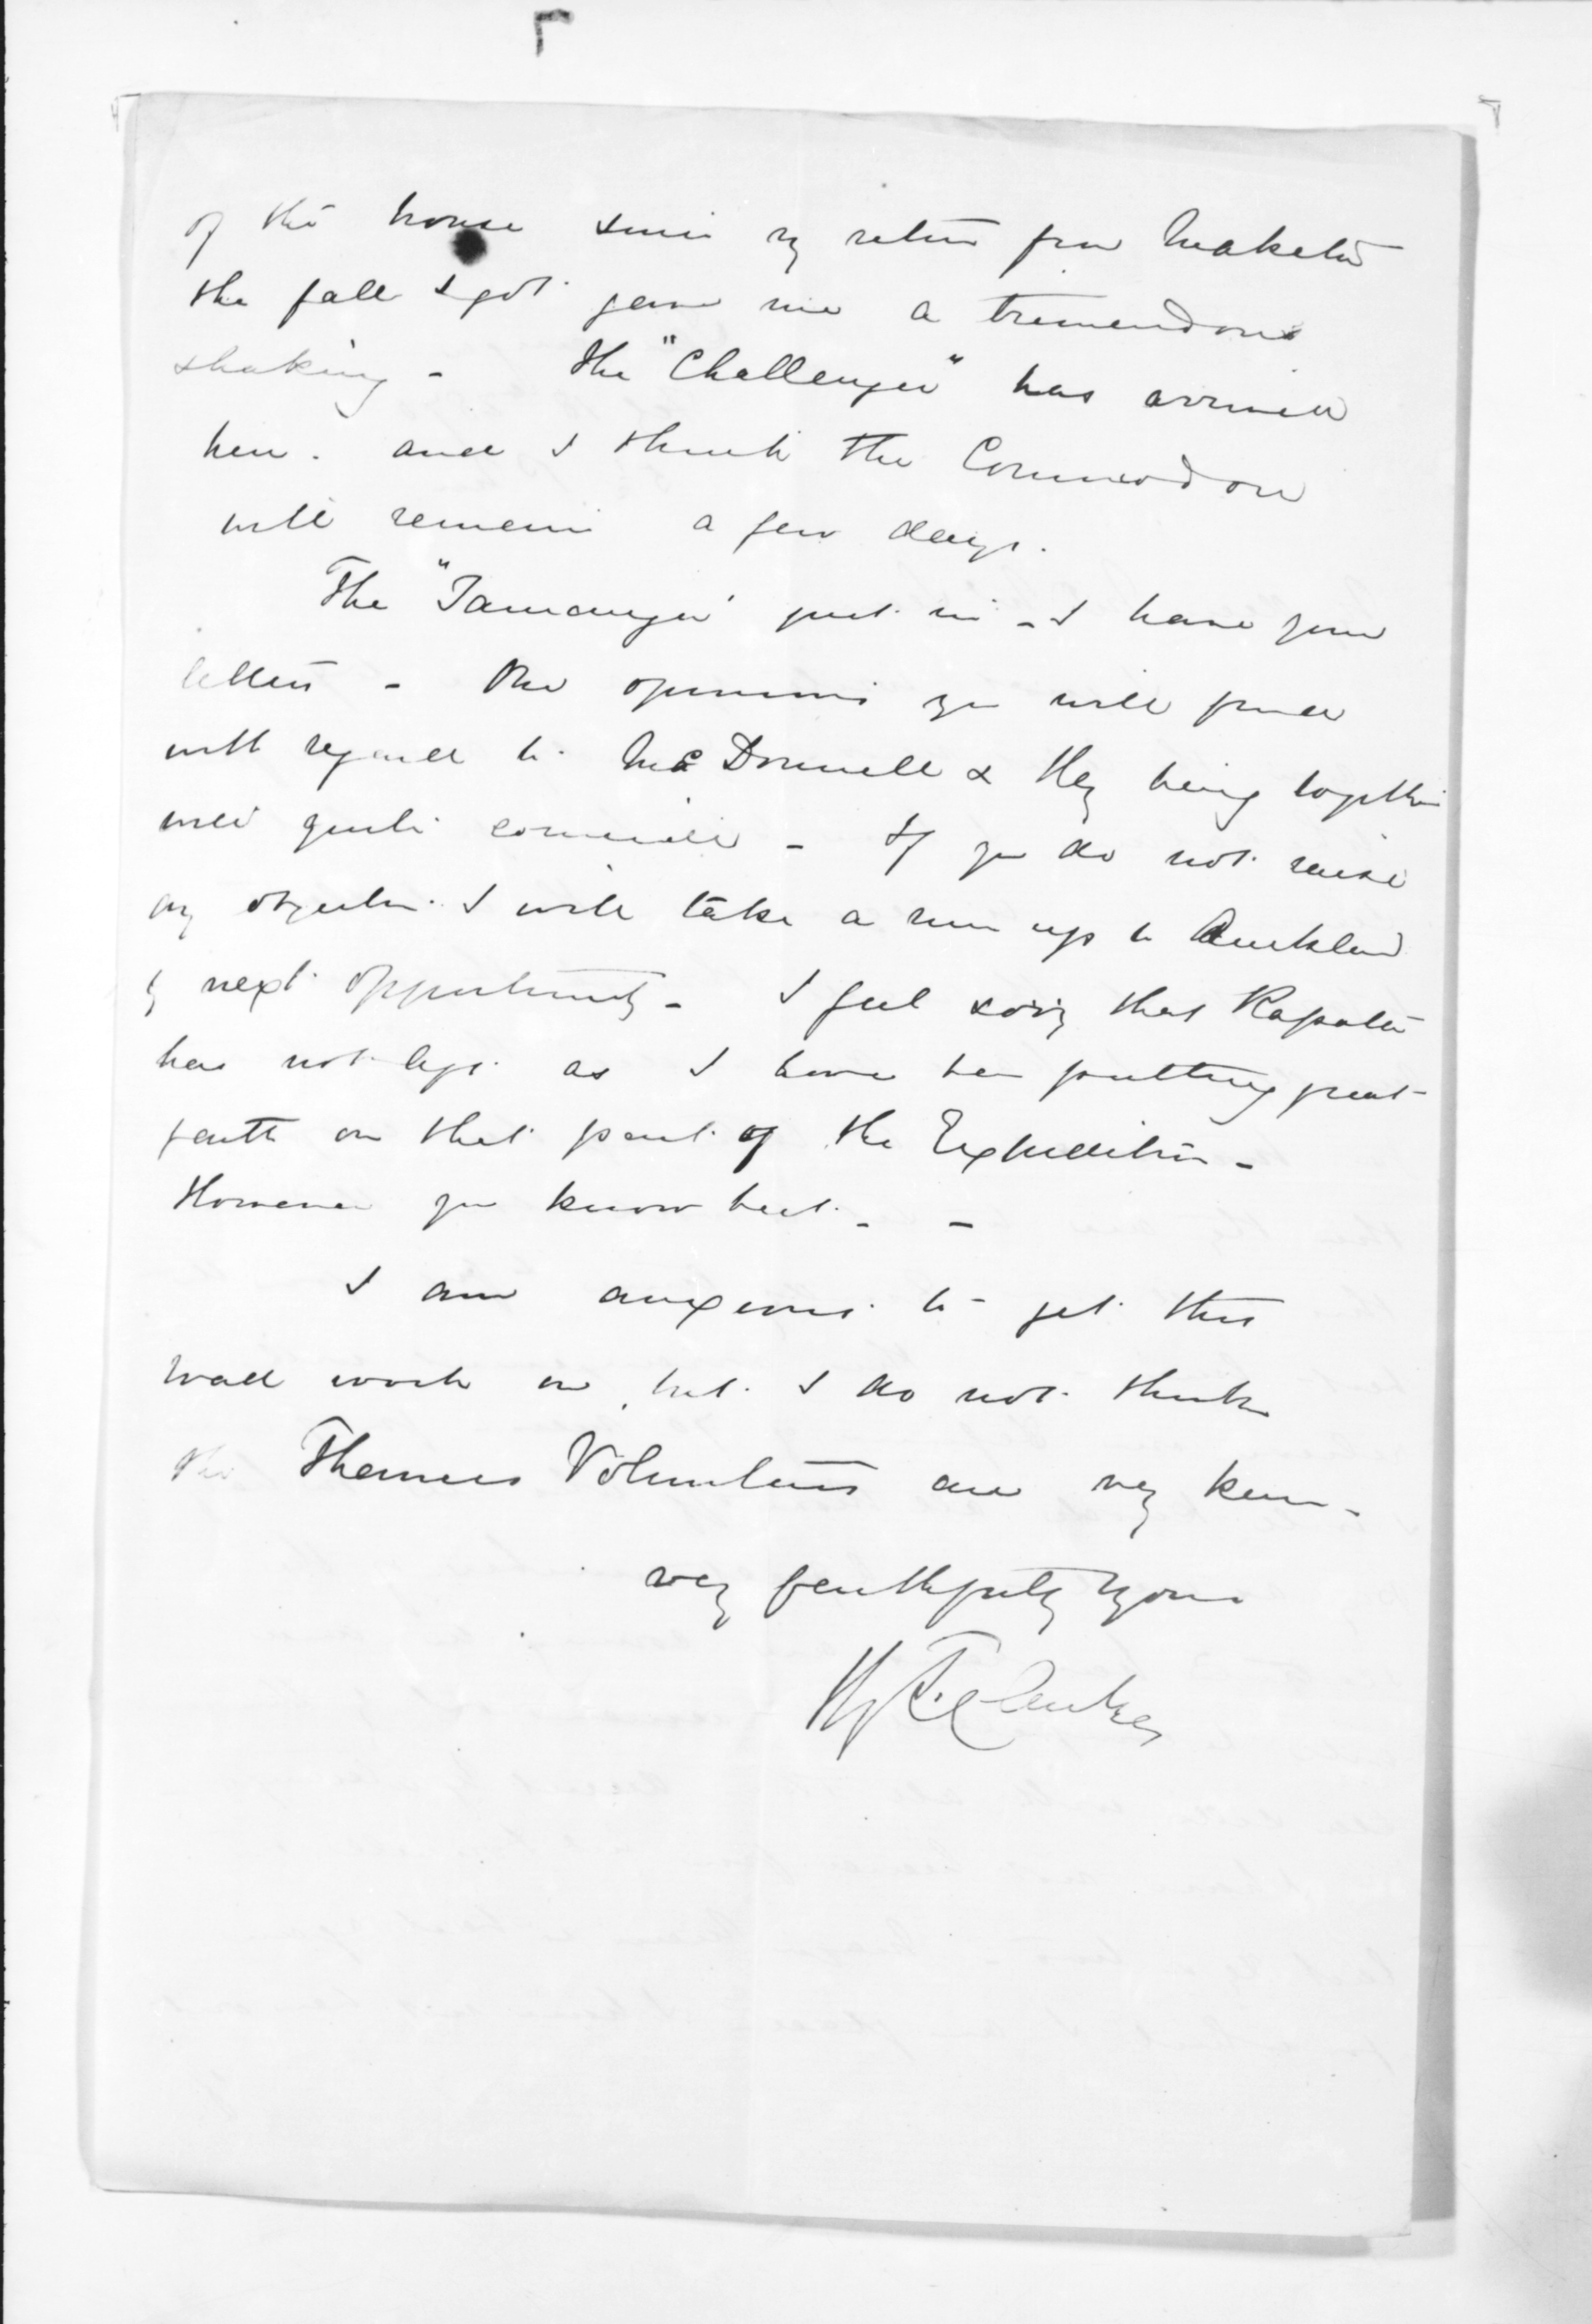 of the house since my return from Maketu
the fall I got gave me a tremendous
shaking - The "Challenger" has arrived
here. and I think the Commodore
will remain a few days.
The "Tauranga" just in - I have your
letters - The opinions you will find
with regard to McDonnell & Hy being together
quite - If you do not raise
any objection I will take a run up to Auckland
by next opportunity - I feel sorry that Ropata
has not left as I have been putting great
faith on that part of the Expedition -
However you know best - -
I am anxious to get this
road work on, but I do not think
the Thames Volunteers are very keen -
very faithfully yours
Hy T. Clarke